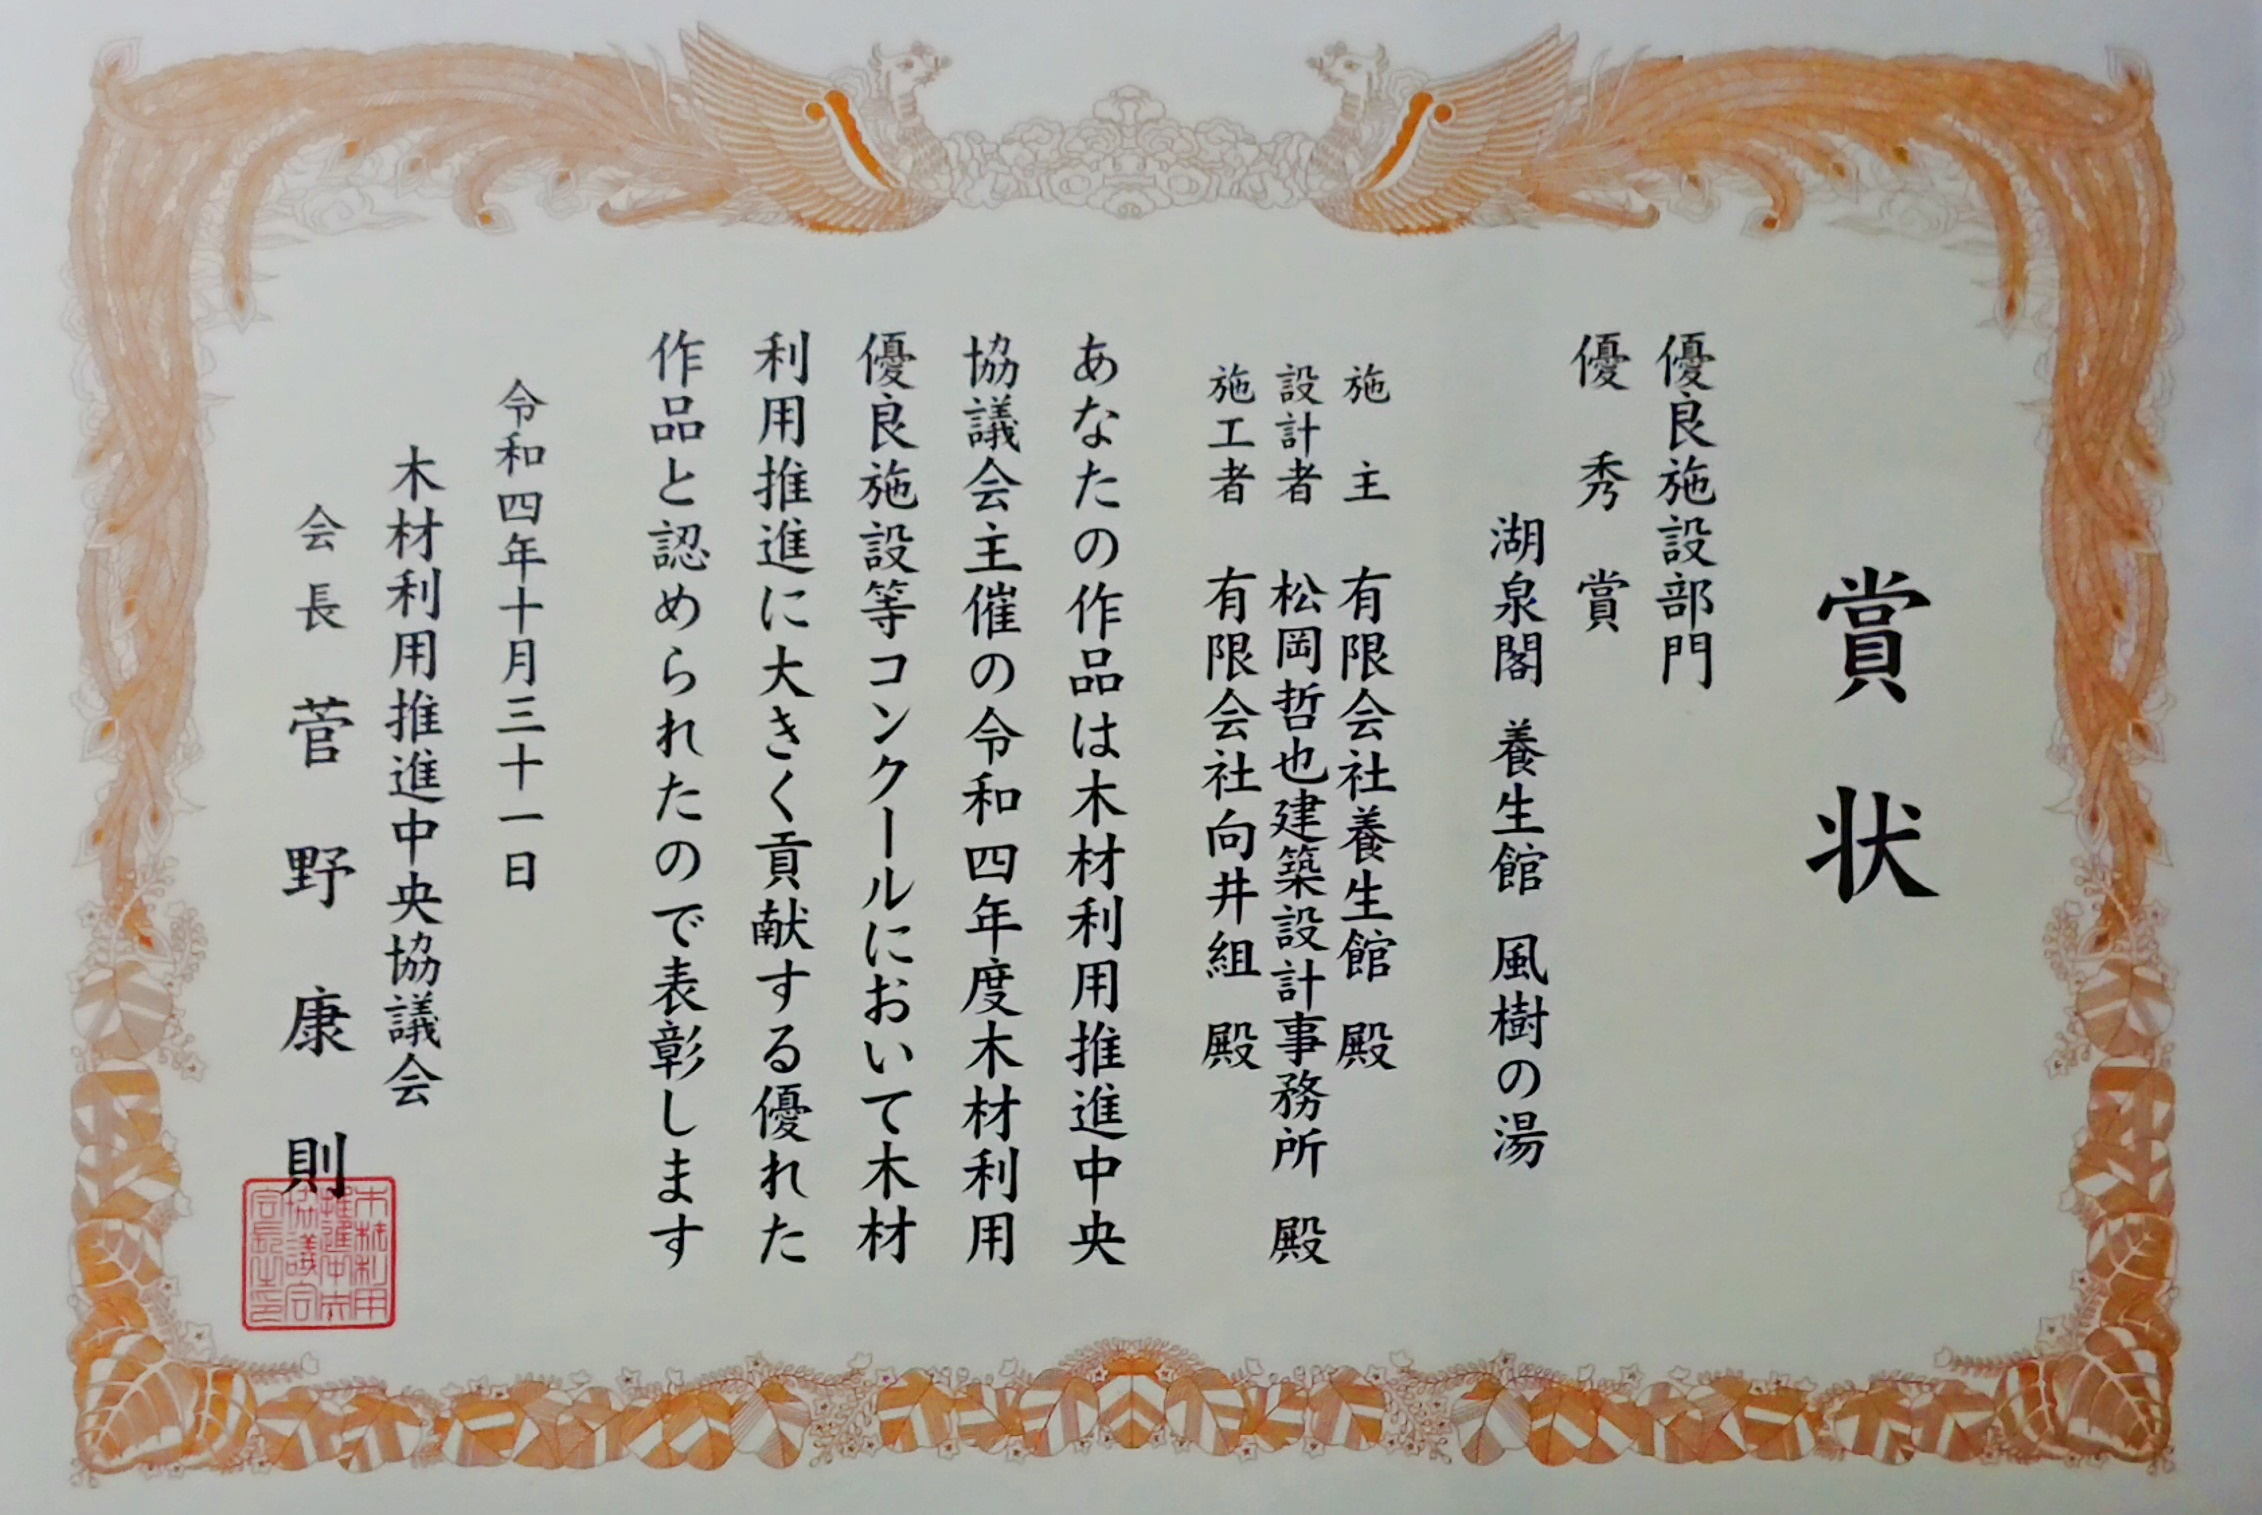 賞状
優良施設部門
優秀賞
湖泉閣 養生館 風樹の湯
施主 有限会社養生館 殿
設計者 松岡哲也建築設計事務所 殿
施工者 有限会社向井組 殿
あなたの作品は木材利用推進中央
協議会主催の令和四年度木材利用
優良施設等コンクールにおいて木材
利用推進に大きく貢献する優れた
作品と認められたので表彰します
令和四年十月三十一日
木材利用推進中央協議会
会長 菅野康則
木材利用
推進中央
協議会
会長之印